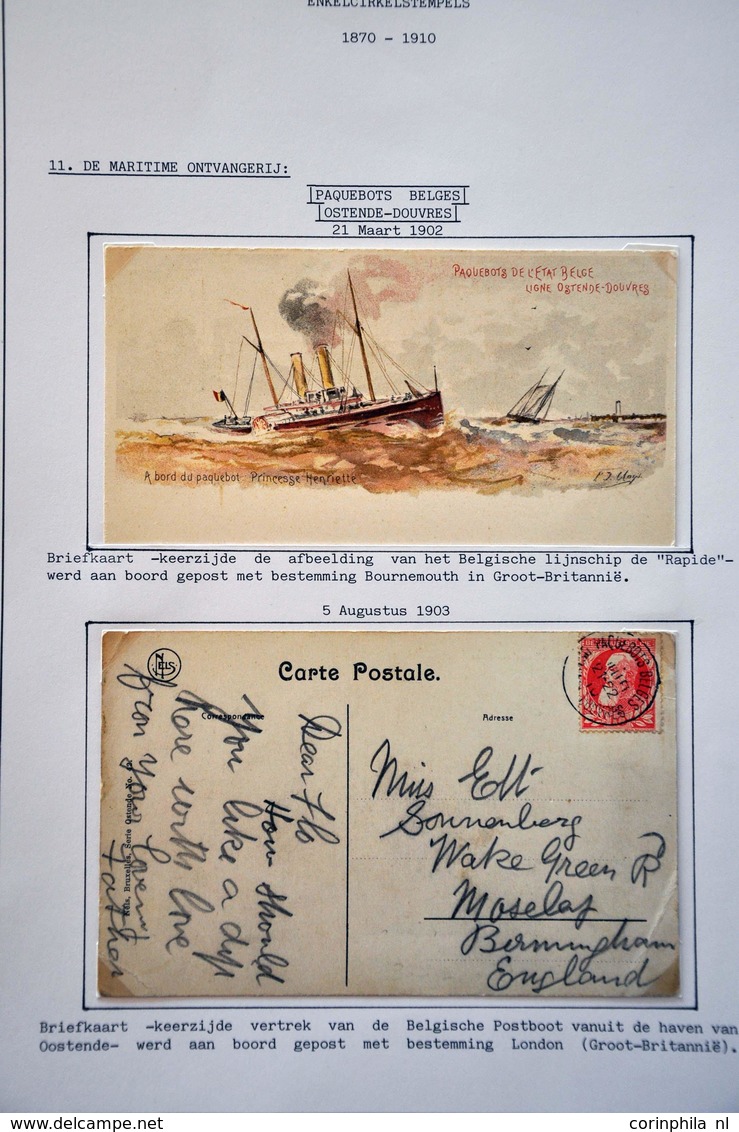 ENKELCIRKELSTEMPELS
1870 - 1910
11. DE MARITIME ONTVANGERIJ:
PAQUEBOTS BELGES
OSTENDE-DOUVRES
21 Maart 1902
PAQUEBOTS DE L'ETAT BELGE
LIGNE OSTENDE-DOUVRES
A bord du paquebot Princesse Henriette
Briefkaart -keerzijde de afbeelding van het Belgische lijnschip de "Rapide"-
werd aan boord gepost met bestemming Bournemouth in Groot-Britannië.
5 Augustus 1903
NELS
Carte Postale.
Correspondance
Adresse
Dear Flo
How should
You like a dip
here with love
from your loving
father
Nels, Bruxelles, Serie Ostende No.
PAQUEBOTS BELGES
Miss Edt
Sonnenberg
Wake Green Rd
Moseley
Birmingham
England
Briefkaart -keerzijde vertrek van de Belgische Postboot vanuit de haven van
Oostende- werd aan boord gepost met bestemming London (Groot-Britannië).
www.delcampe.net
corinphila nl